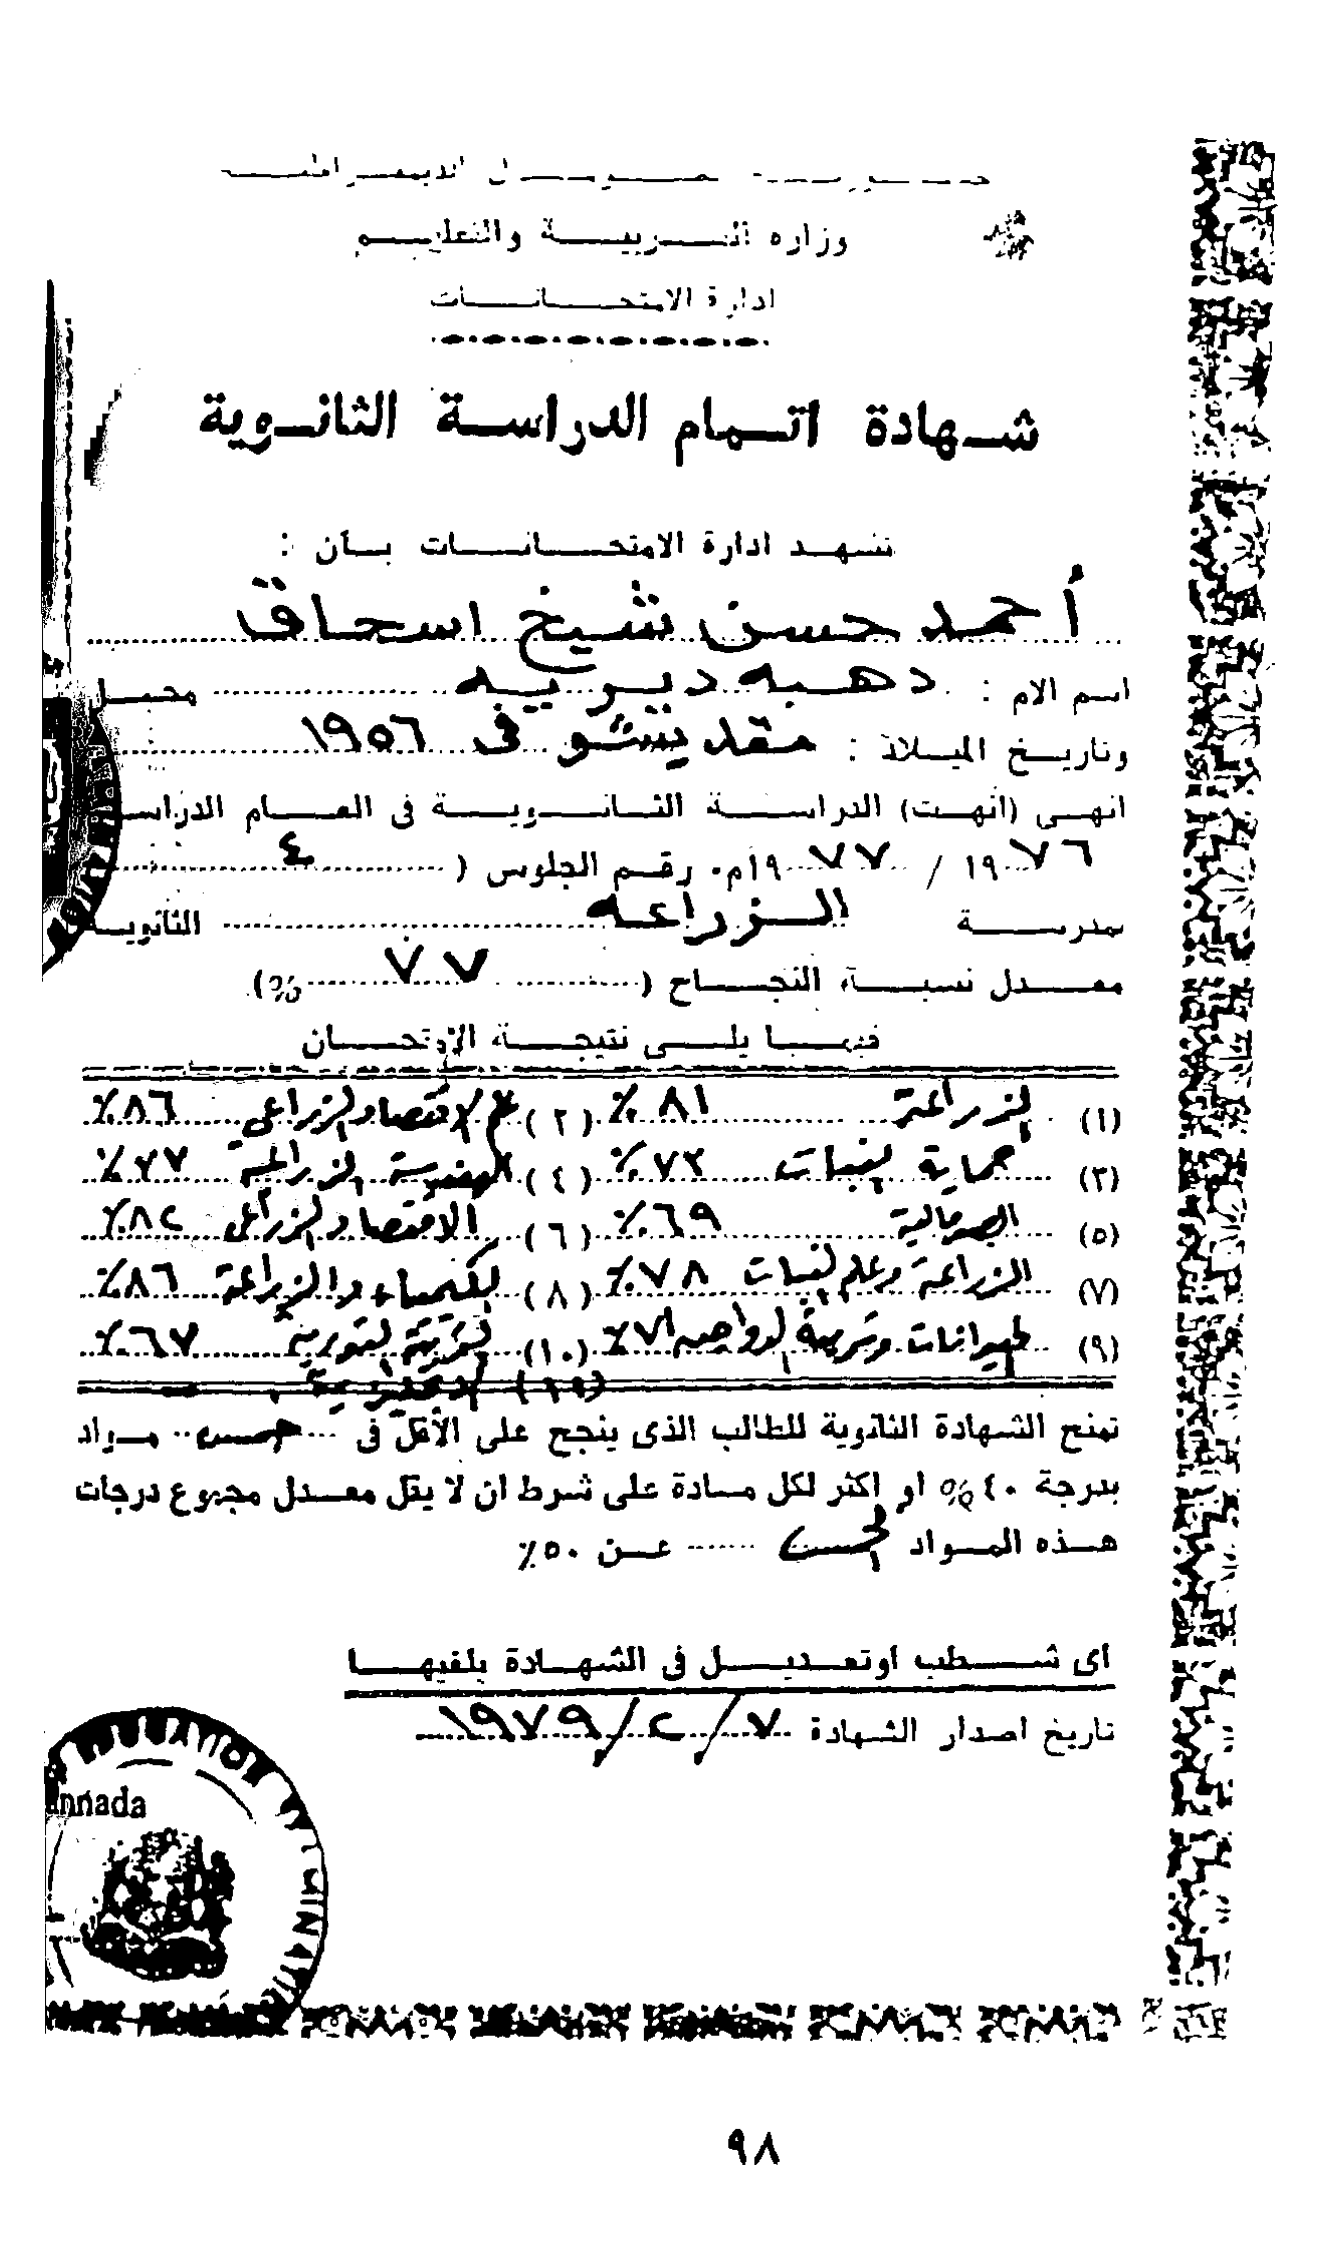 جمهوريـة الصومـال الديمقراطيـة
وزاره التــربيــة والتعليــم
ادارة الامتحــانــات
شـهادة اتـمام الدراسـة الثانـوية
تشهـد ادارة الامتحــانــات بـأن :
أحمد حسن شيخ اسحاق
اسم الام : دهبه ديرييه محـل
وتاريـخ الميـلاد : مقديشو فى ١٩٥٦
انهـى (انهـت) الدراســة الثـانـويــة فى العــام الدراسـ
١٩٧٦ / ١٩٧٧م٠ رقـم الجلوس ( ٤
بمدرســة الـزراعه الثانويـة
معــدل نسبــة النجــاح ( ٧٧ %)
فيمــا يلــى نتيجــة الامتحــان
(١) الزراعة ٨١٪ (٢) علم الاقتصاد الزراعي ٨٦٪
(٣) حماية النبات ٧٣٪ (٤) الهندسة الزراعية ٧٧٪
(٥) الصومالية ٦٩٪ (٦) الاقتصاد الزراعي ٨٢٪
(٧) الزراعة وعلم النبات ٧٨٪ (٨) الكيمياء والزراعة ٨٦٪
(٩) حيوانات وتربية الدواجن ٧١٪ (١٠) التربية الثورية ٦٧٪
(١١)
تمنح الشهادة الثانوية للطالب الذى ينجح على الأقل فى خمس مـواد
بدرجة ٤٠% او اكثر لكل مـادة على شرط ان لا يقل معـدل مجموع درجات
هـذه المـواد الخمس عـن ٥٠٪
اى شــطب اوتعـديــل فى الشهـادة يلغيهــا
تاريخ اصدار الشهادة ٧/٢/١٩٧٩
nnada
٩٨